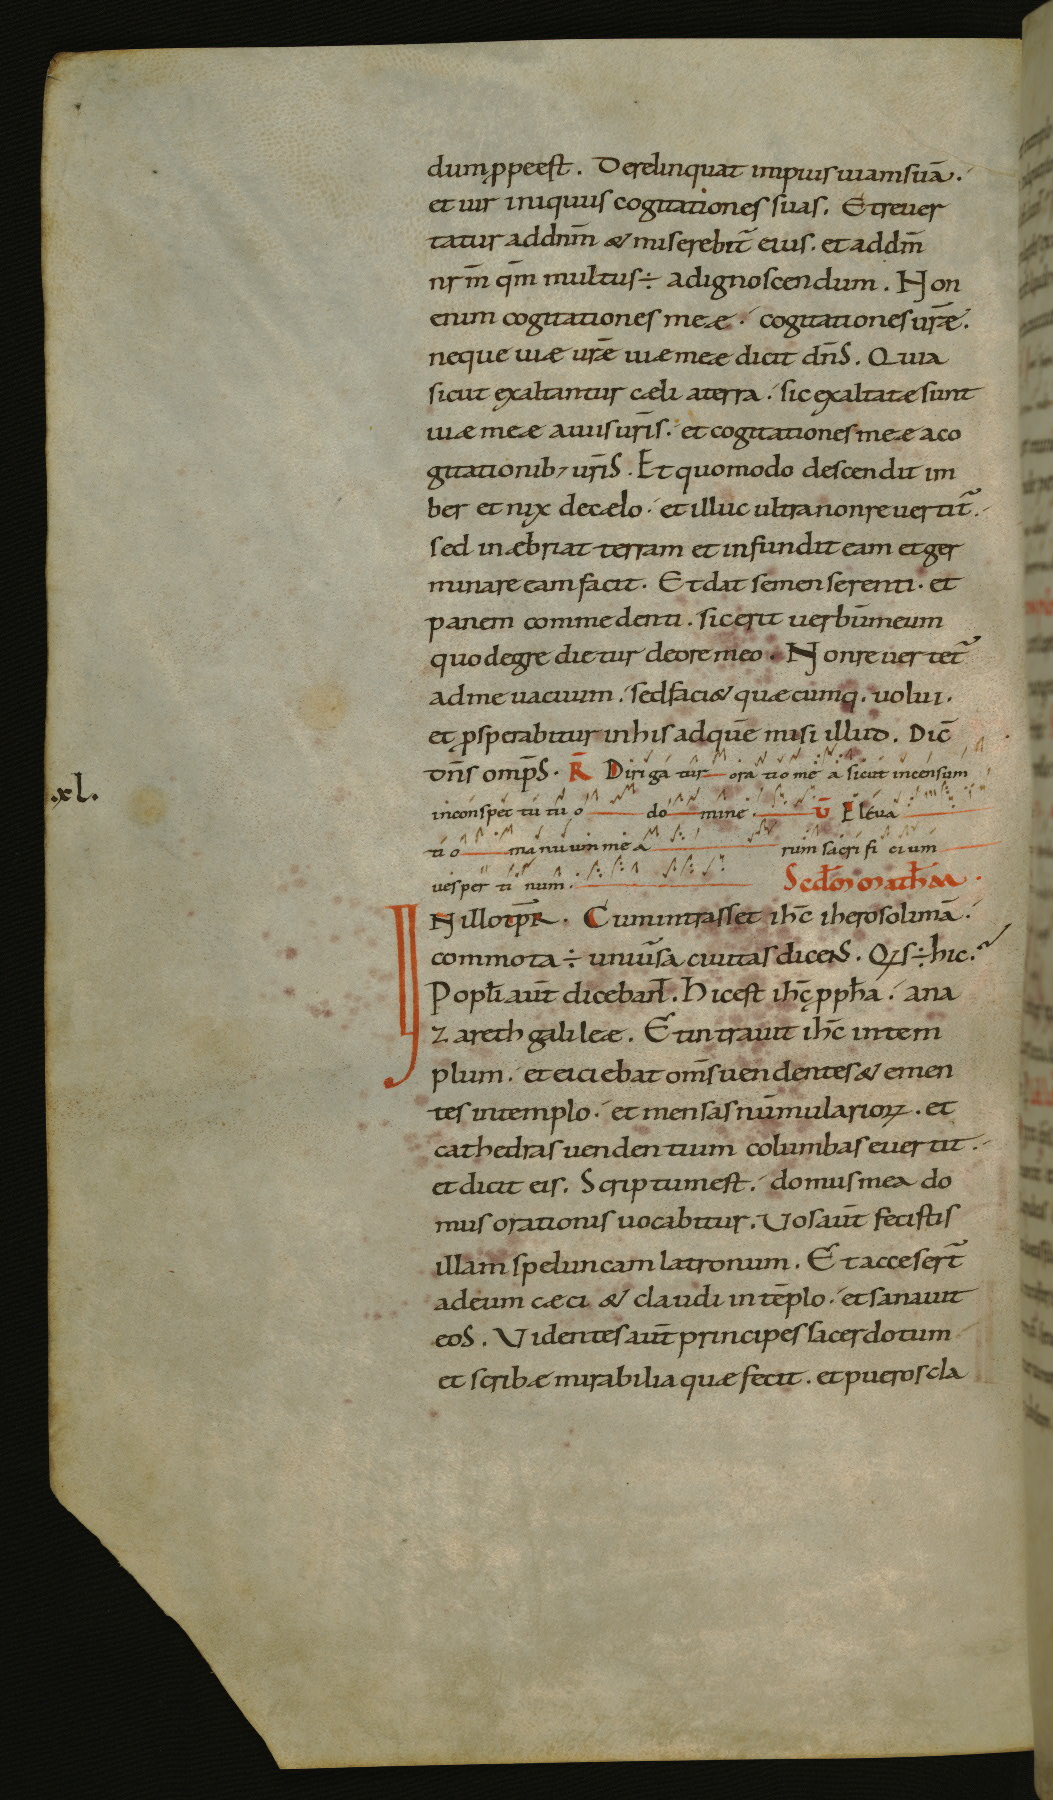 dum ꝓpe est. Derelinquat impius uiam suā.
et uir iniquus cogitationes suas. Et reuer
tatur ad dnm̄ & miserebit̄ eius. et ad dm̄
nrm̄ qm̄ multus ÷ ad ignoscendum. Non
enim cogitationes meæ. cogitationes ur̄æ.
neque uiæ ur̄æ uiæ meæ dicit dn̄s. Quia
sicut exaltantur cæli a terra. sic exaltatæ sunt
uiæ meæ a uiis ur̄is. et cogitationes meæ a co
gitationib; ur̄is. Et quomodo descendit im
ber et nix de cælo. et illuc ultra non reuertit̄.
sed inæbriat terram et infundit eam et ger
minare eam facit. Et dat semen serenti. et
panem commedenti. sic erit uerbūm eum
quod egredietur de ore meo. Non reuertet̄
ad me uacuum. sed faci& quæcumq. uolui.
et ꝓsperabitur in his ad quē misi illud. Dic̄
dn̄s omp̄s. R̄ Dirigatur oratio mea sicut incensum
in conspectu tuo domine. V̄ Eleua
xl.
tio manuum mea rum sacrificium
uespertinum. Scd̄m matħm
IN illo tp̄r. Cum intrasset ih̄c iherosolimā.
commota ÷ uniūsa ciuitas dicens. Qs ÷ hic.
Popłi aut̄ dicebant. Hic est ih̄c ꝓpħa. a na
zareth galileæ. Et intrauit ih̄c in tem
plum. et eiciebat om̄s uendentes & emen
tes in templo. et mensas nūmulariorꝝ. et
cathedras uendentium columbas euertit.
et dicit eis. Scriptum est. domus mea do
mus orationis uocabitur. Vos aut̄ fecistis
illam speluncam latronum. Et accesert̄
ad eum cæci & claudi in tēplo. et sanauit
eos. Videntes aut̄ principes sacerdotum
et scribæ mirabilia quæ fecit. et pueros cla